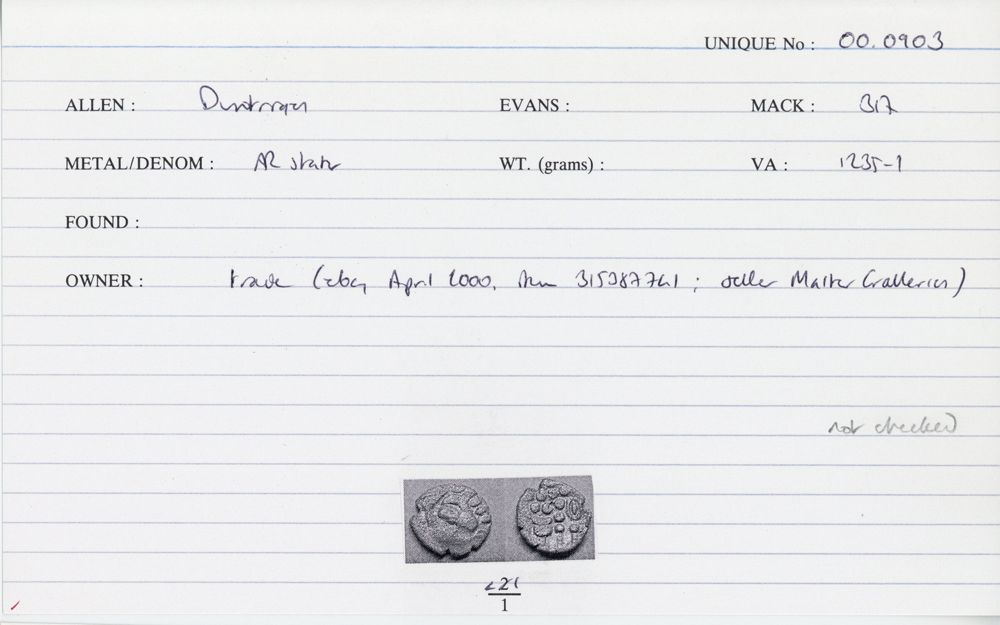 UNIQUE No : 00.0903
ALLEN : Durotriges EVANS : MACK : 317
METAL/DENOM : AR stater WT. (grams) : VA : 1235-1
FOUND :
OWNER : trade (ebay April 2000, item 315387741 ; seller Malter Galleries)
not checked
1